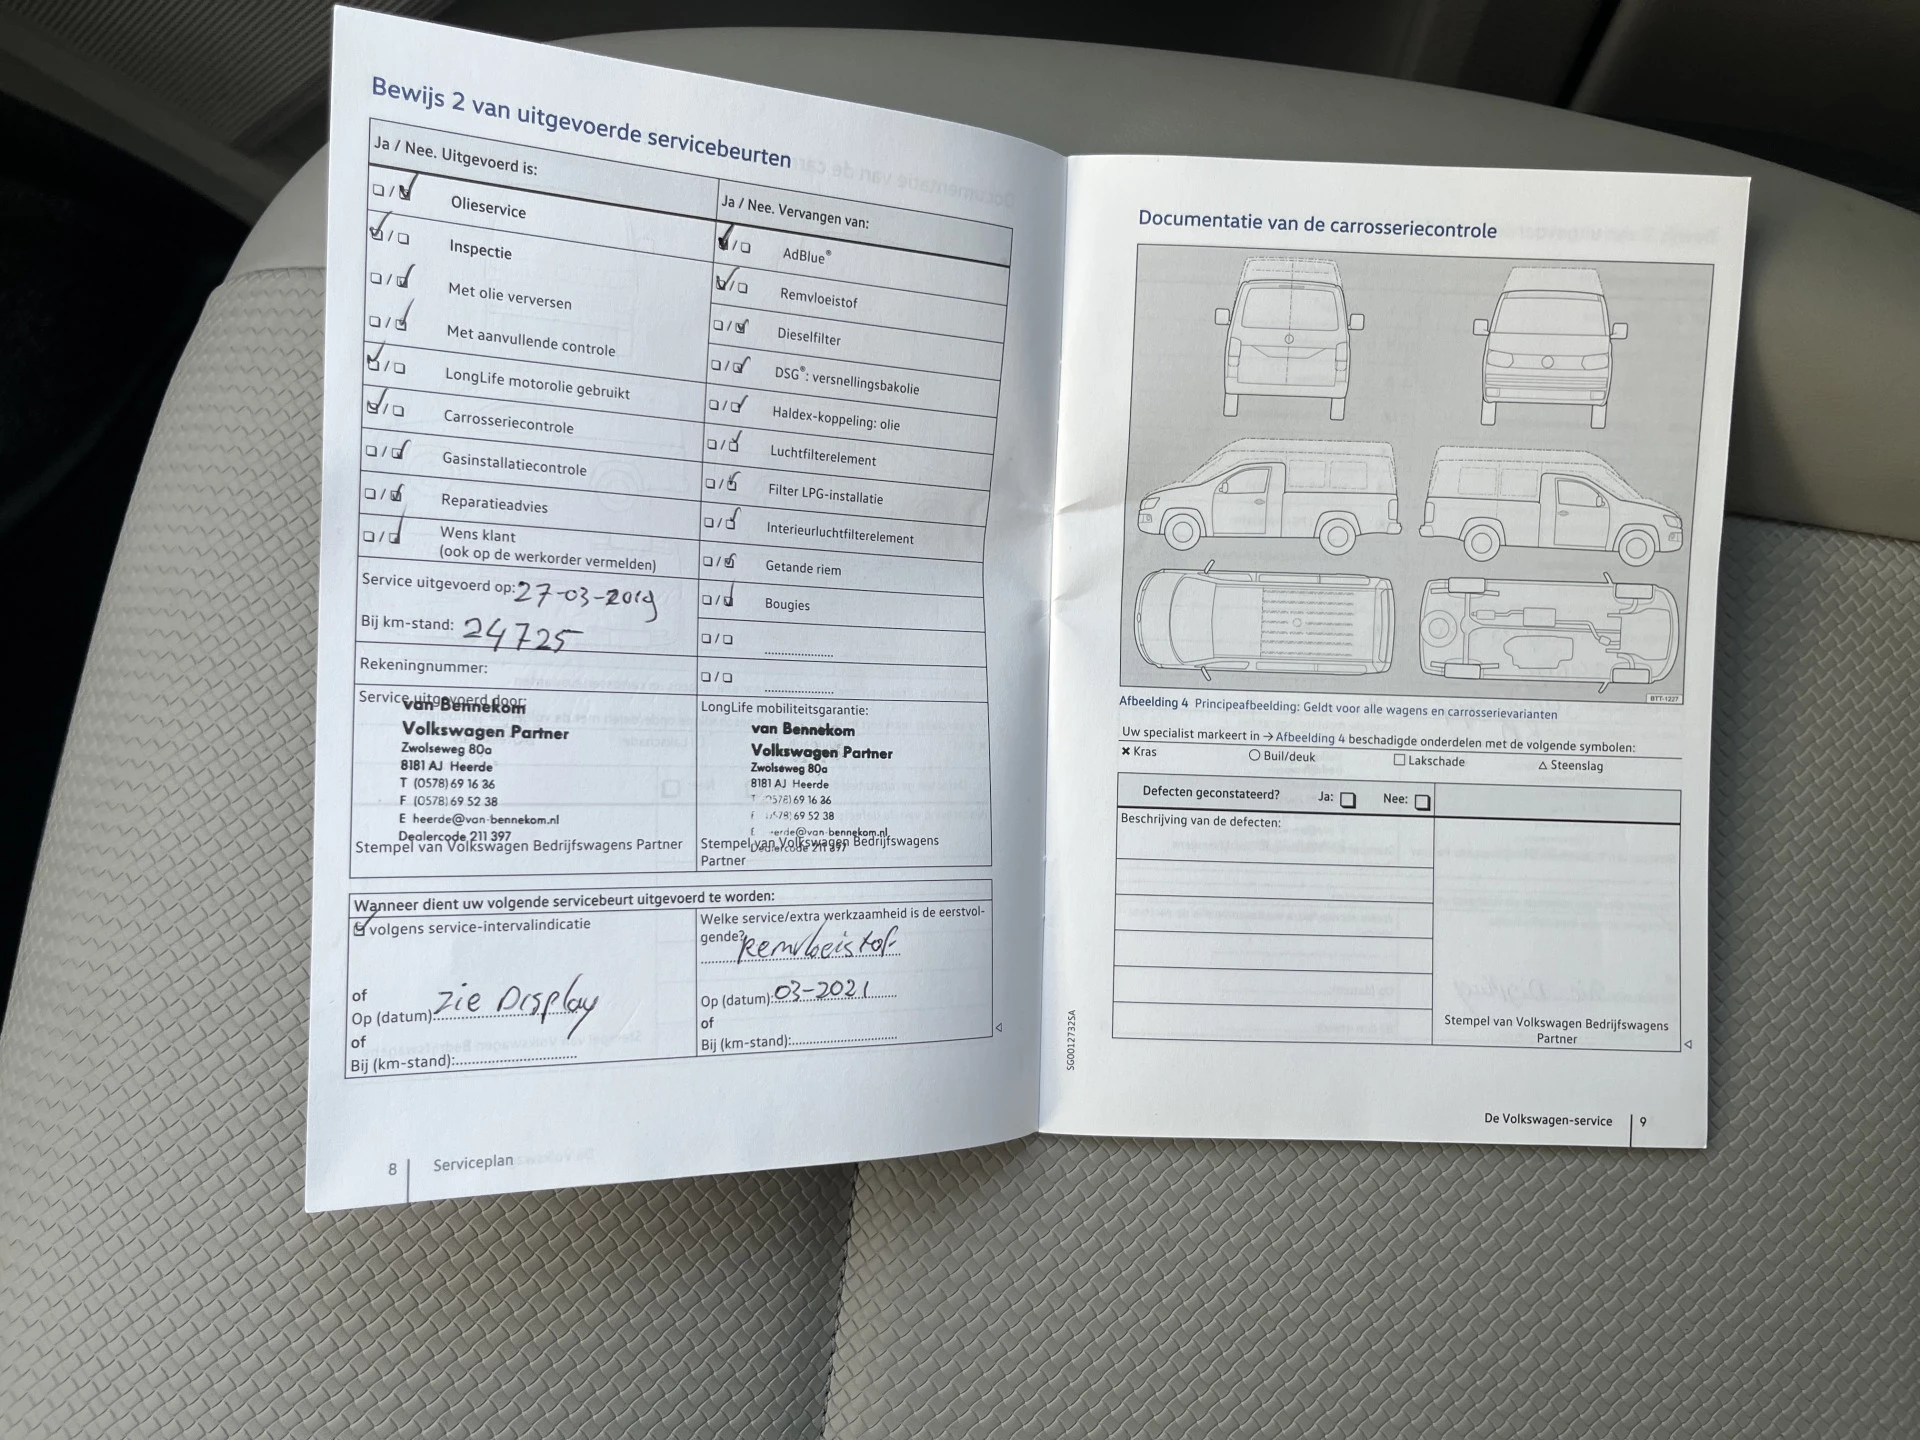 Bewijs 2 van uitgevoerde servicebeurten
Ja / Nee. Uitgevoerd is:
Olieservice
Inspectie
Met olie verversen
Met aanvullende controle
LongLife motorolie gebruikt
Carrosseriecontrole
Gasinstallatiecontrole
Reparatieadvies
Wens klant
(ook op de werkorder vermelden)
Service uitgevoerd op: 27-03-2019
Bij km-stand: 24725
Rekeningnummer:
Ja / Nee. Vervangen van:
AdBlue®
Remvloeistof
Dieselfilter
DSG®: versnellingsbakolie
Haldex-koppeling: olie
Luchtfilterelement
Filter LPG-installatie
Interieurluchtfilterelement
Getande riem
Bougies
Service uitgevoerd door:
van Bennekom
Volkswagen Partner
Zwolseweg 80a
8181 AJ Heerde
T (0578) 69 16 36
F (0578) 69 52 38
E heerde@van-bennekom.nl
Dealercode 211 397
Stempel van Volkswagen Bedrijfswagens Partner
LongLife mobiliteitsgarantie:
van Bennekom
Volkswagen Partner
Zwolseweg 80a
8181 AJ Heerde
69 16 36
69 52 38
@van-bennekom.nl
Stempel van Volkswagen Bedrijfswagens
Partner
Wanneer dient uw volgende servicebeurt uitgevoerd te worden:
volgens service-intervalindicatie
of
Op (datum): Zie Display
of
Bij (km-stand):
Welke service/extra werkzaamheid is de eerstvol-
gende? Remvloeistof
Op (datum): 03-2021
of
Bij (km-stand):
8 Serviceplan
Documentatie van de carrosseriecontrole
BTT-1227
Afbeelding 4 Principeafbeelding: Geldt voor alle wagens en carrosserievarianten
Uw specialist markeert in → Afbeelding 4 beschadigde onderdelen met de volgende symbolen:
× Kras ○ Buil/deuk □ Lakschade △ Steenslag
Defecten geconstateerd? Ja: Nee:
Beschrijving van de defecten:
Stempel van Volkswagen Bedrijfswagens
Partner
SG0012732SA
De Volkswagen-service 9